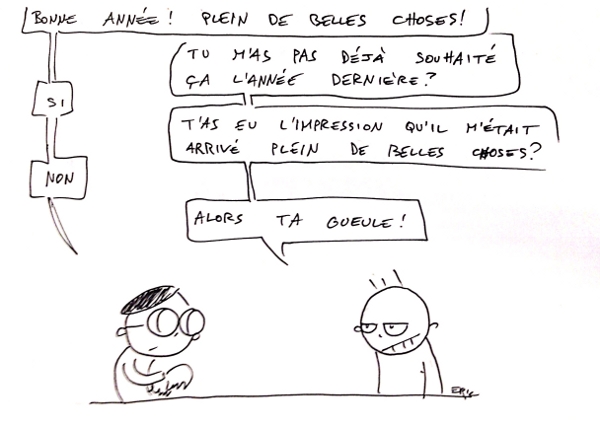 BONNE ANNÉE! PLEIN DE BELLES CHOSES!
TU M'AS PAS DÉJÀ SOUHAITÉ
ÇA L'ANNÉE DERNIÈRE?
SI
T'AS EU L'IMPRESSION QU'IL M'ÉTAIT
ARRIVÉ PLEIN DE BELLES CHOSES?
NON
ALORS TA GUEULE!